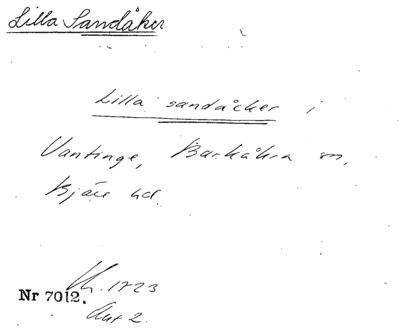 Lilla Sandåker
Lilla sandåcker i
Vantinge, Barkåkra sn,
Bjäre hd.
Lh. 1723
Nr 7012.
Akt 2.